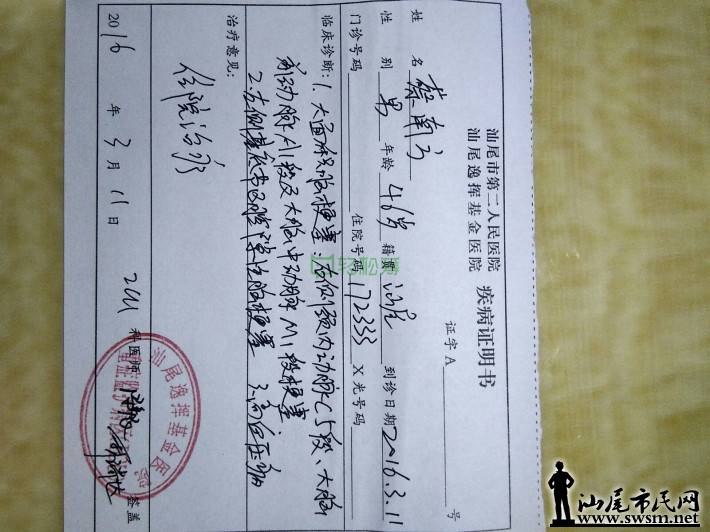 汕尾市第二人民医院
汕尾逸挥基金医院
疾病证明书
证字A 号
姓 名 蔡南方
性 别 男 年龄 48岁 籍贯 汕尾 到诊日期 2016.3.11
门诊号码 住院号码 172333 X光号码
临床诊断：1. 大面积脑梗塞：右侧颈内动脉C5段、大脑
前动脉A1段及大脑中动脉M1段梗塞
2. 左侧基底节区腔隙性脑梗塞 3. 高血压病
治疗意见：
住院治疗
2016 年 3 月 11 日
科医师
签盖
汕尾逸挥基金医院
轻松筹
汕尾市民网
www.swsm.net